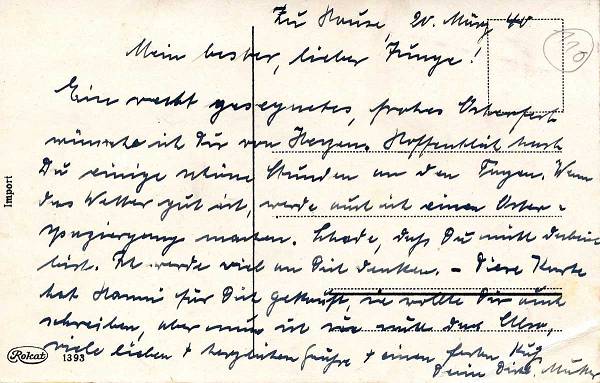 Zu Hause, 20. März 40
110
Mein bester, lieber Junge!
Eine recht gesegnetes, frohes Osterfest
wünsche ich Dir von Herzen. Hoffentlich hast
Du einige schöne Stunden an den Tagen. Wenn
das Wetter gut ist, werde auch ich einen Oster-
spaziergang machen. Schade, daß Du nicht dabei
bist. Ich werde viel an Dich denken. – Diese Karte
hat Hanni für Dich gekauft, sie wollte Dir auch
schreiben, aber nun ist sie
viele lieben + herzlichsten Grüße + einen festen Kuß
Deine Mutter
Import
Rokat
1393